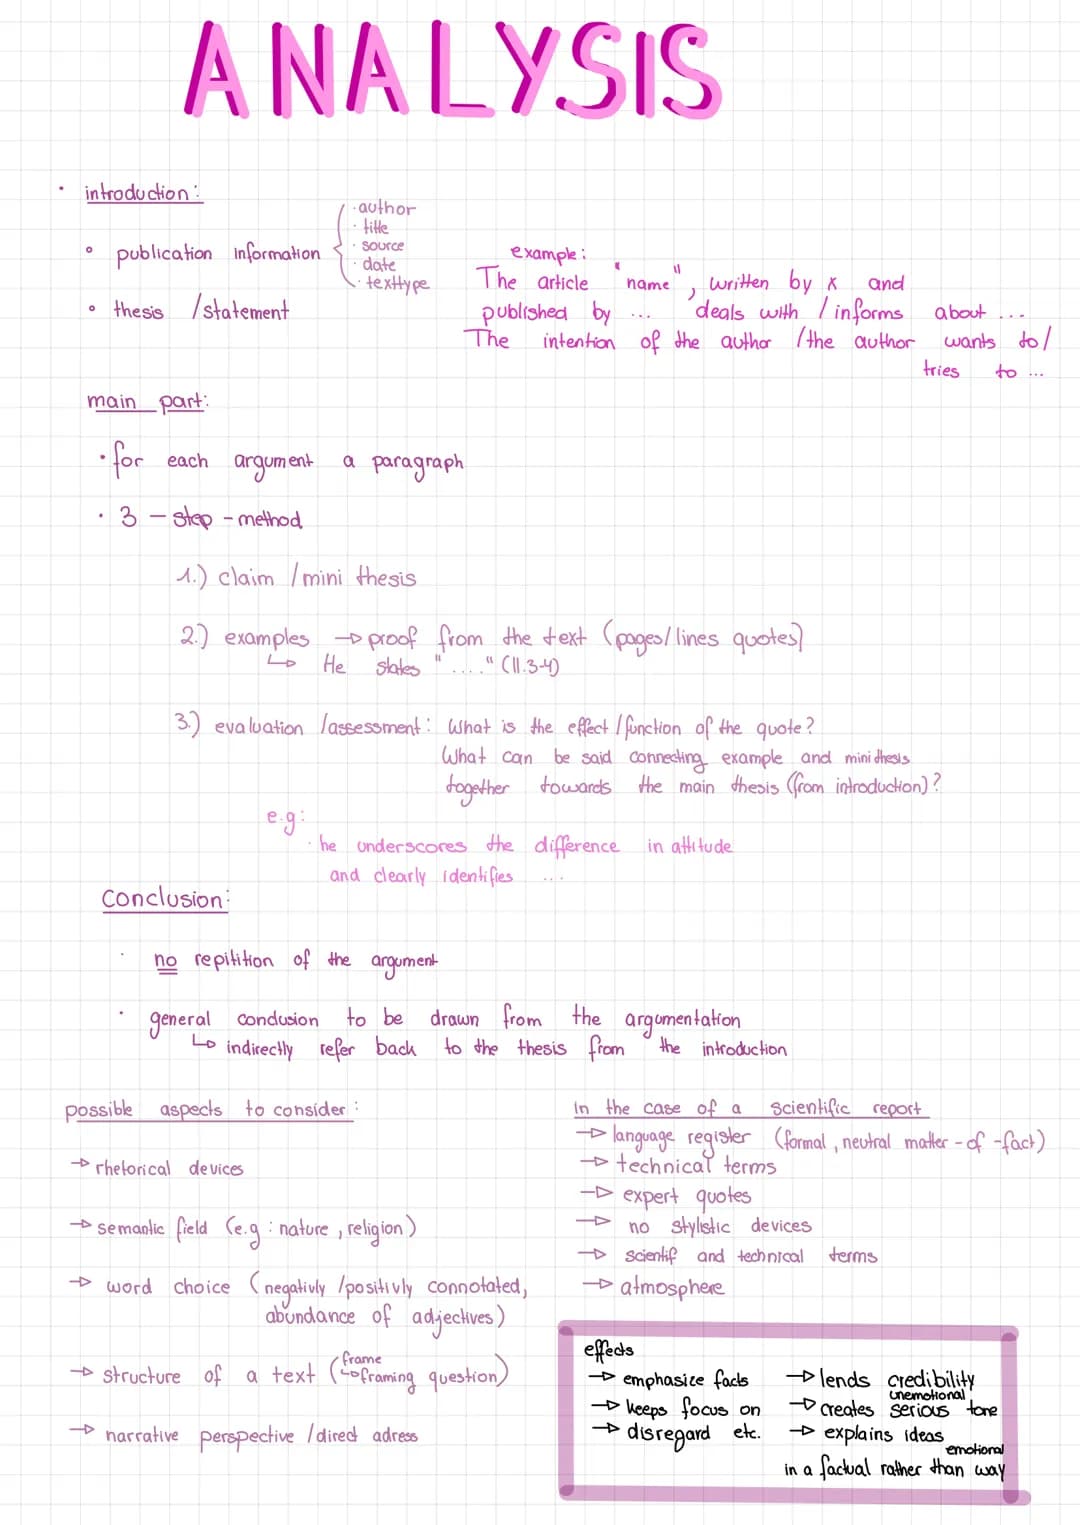 ANALYSIS
· introduction:
° publication information
· author
· title
· source
· date
· texttype
° thesis /statement
example:
The article "name", written by x and
published by ... deals with / informs about ...
The intention of the author /the author wants to/
tries to ...
main part:
· for each argument a paragraph
· 3 - step - method
1.) claim /mini thesis
2.) examples → proof from the text (pages/lines quotes)
↳ He states "...." (ll.3-4)
3.) evaluation /assessment: What is the effect /function of the quote?
What can be said connecting example and mini thesis
together towards the main thesis (from introduction)?
e.g:
· he underscores the difference in attitude
and clearly identifies ...
Conclusion:
· no repitition of the argument
· general conclusion to be drawn from the argumentation
↳ indirectly refer back to the thesis from the introduction
possible aspects to consider:
→ rhetorical devices
→ semantic field (e.g : nature, religion)
→ word choice (negativly /positivly connotated,
abundance of adjectives)
→ structure of a text (frame
↳ framing question)
→ narrative perspective /direct adress
in the case of a scientific report
→ language register (formal, neutral matter-of-fact)
→ technical terms
→ expert quotes
→ no stylistic devices
→ scientif and technical terms
→ atmosphere
effects
→ emphasize facts
→ keeps focus on
→ disregard etc.
→ lends credibility
→ creates unemotional serious tone
→ explains ideas
in a factual rather than emotional way